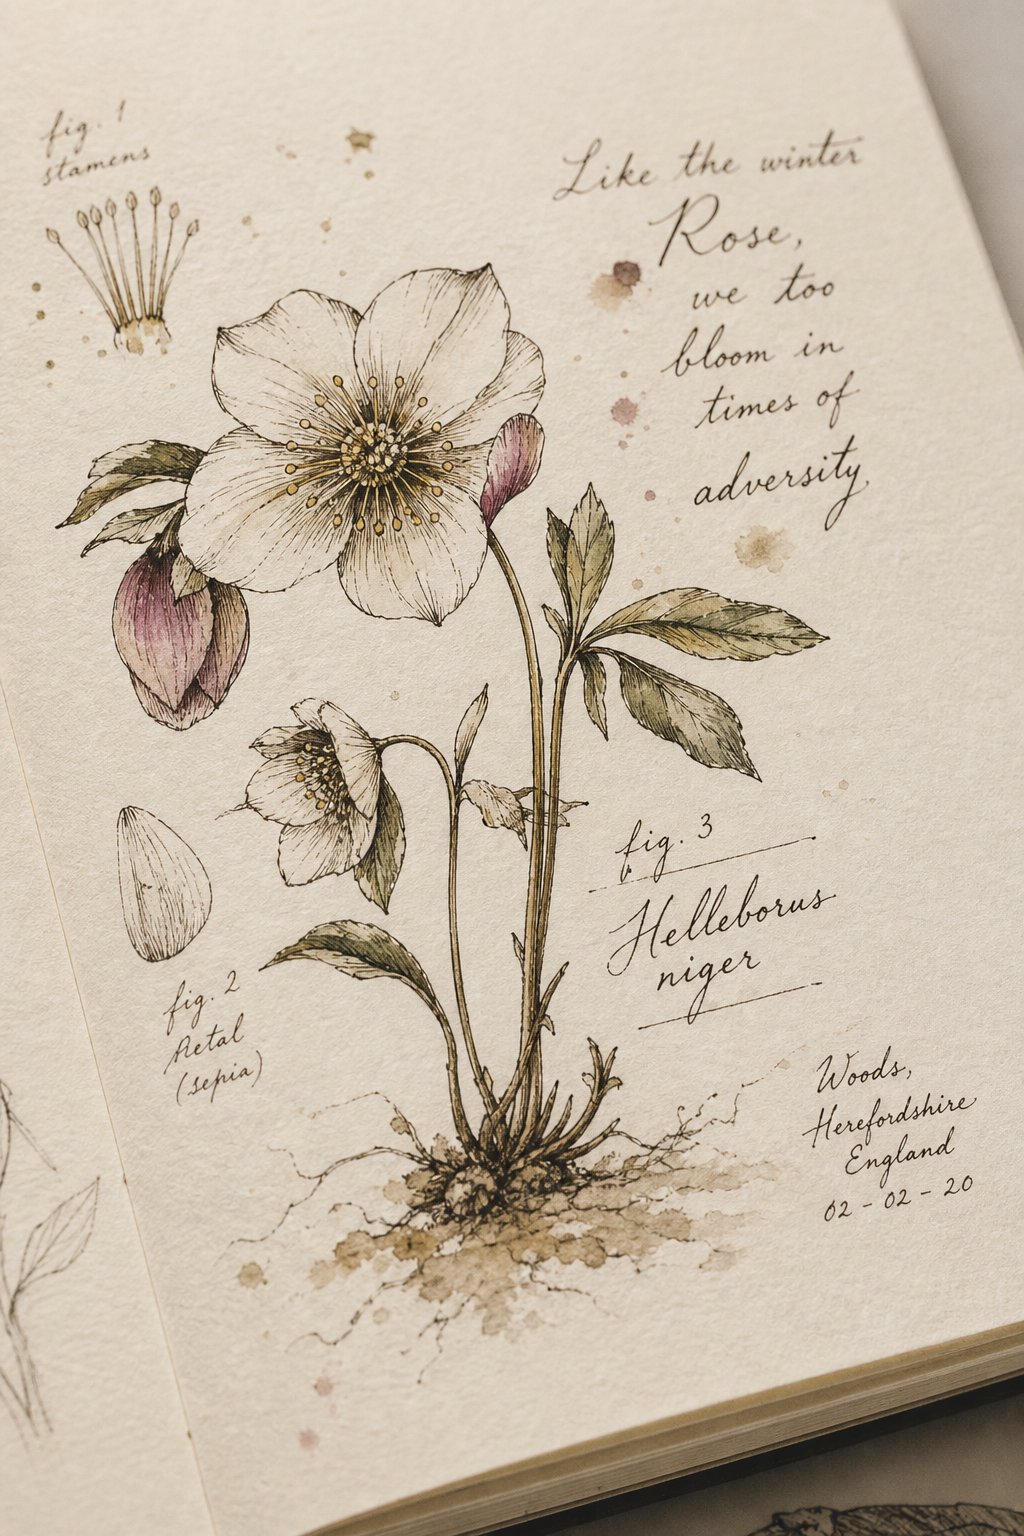 fig. 1
stamens
Like the winter
Rose,
we too
bloom in
times of
adversity
fig. 3
Helleborus
niger
fig. 2
Petal
(sepia)
Woods,
Herefordshire
England
02 - 02 - 20